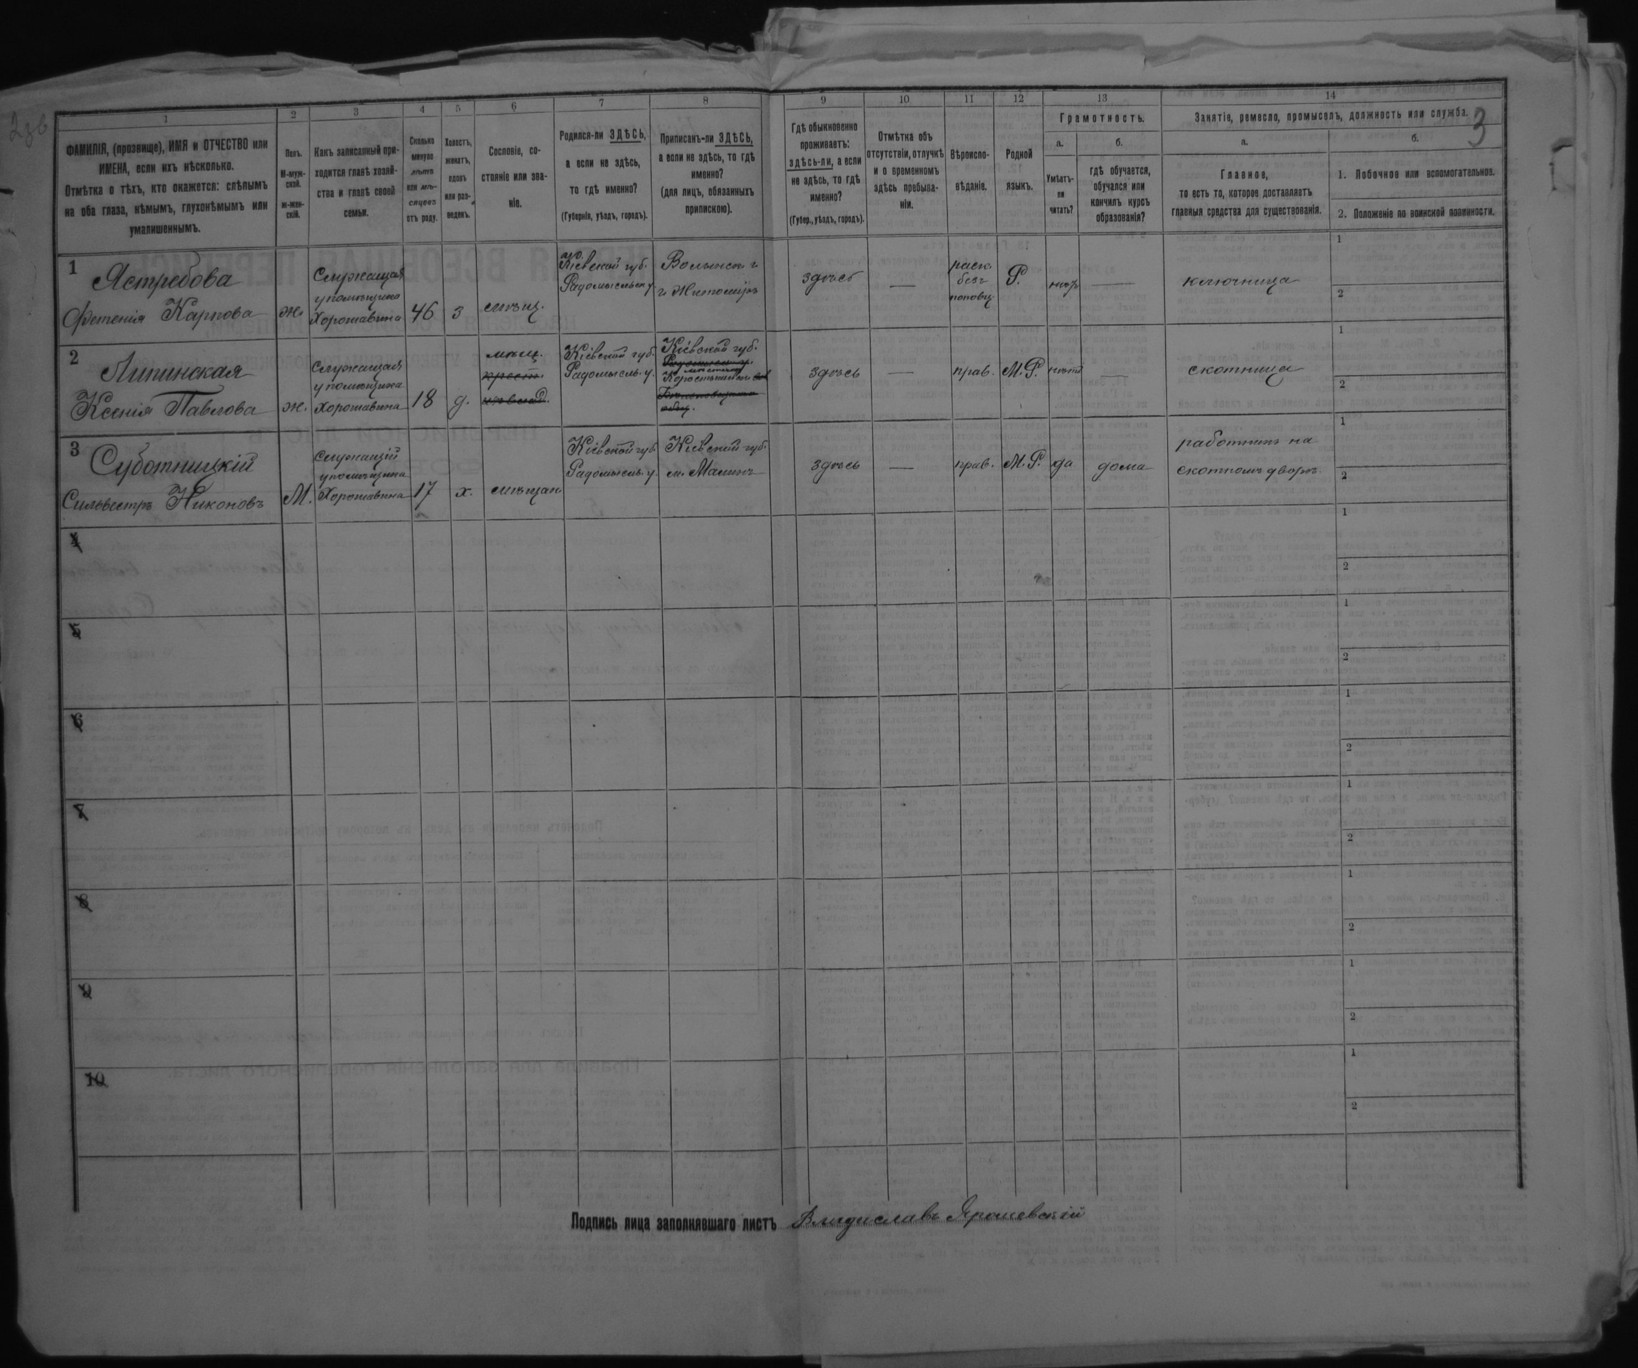 3
1
2
3
4
5
6
7
8
9
10
11
12
13
14
ФАМИЛІЯ, (прозвище), ИМЯ и ОТЧЕСТВО или
ИМЕНА, если ихъ нѣсколько.
Отмѣтка о тѣхъ, кто окажется: слѣпымъ
на оба глаза, нѣмымъ, глухонѣмымъ или
умалишеннымъ.
Полъ.
М-муж-
ской.
ж-жен-
скій.
Какъ записанный при-
ходится главѣ хозяй-
ства и главѣ своей
семьи.
Сколько
минуло
лѣтъ
или мѣ-
сяцевъ
отъ роду.
Холостъ,
женатъ,
вдовъ
или раз-
веденъ.
Сословіе, со-
стояніе или зва-
ніе.
Родился-ли ЗДѢСЬ,
а если не здѣсь,
то гдѣ именно?
(Губернія, уѣздъ, городъ).
Приписанъ-ли ЗДѢСЬ,
а если не здѣсь, то гдѣ
именно?
(для лицъ, обязанныхъ
припискою).
Гдѣ обыкновенно
проживаетъ:
здѣсь-ли, а если
не здѣсь, то гдѣ
именно?
(Губер., уѣздъ, городъ).
Отмѣтка объ
отсутствіи, отлучкѣ
и о временномъ
здѣсь пребыва-
ніи.
Вѣроиспо-
вѣданіе.
Родной
языкъ.
Грамотность.
а.
Умѣетъ-
ли
читать?
б.
гдѣ обучается,
обучался или
кончилъ курсъ
образованія?
Занятіе, ремесло, промыселъ, должность или служба.
а.
Главное,
то есть то, которое доставляетъ
главныя средства для существованія.
б.
1. Побочное или вспомогательное.
2. Положеніе по воинской повинности.
1
Ястребова
Фотенія Карпова
ж.
Служащая
у помѣщика
Хорошавина
46
з
мѣщ.
Кіевской губ.
Радомысльск. у
Волынск. г
г. Житоміръ
здѣсь
—
раск.
без-
поповц.
Р.
нѣтъ
—
ключница
1
2
2
Липинская
Ксенія Павлова
ж.
Служащая
у помѣщика
Хорошавина
18
д.
мѣщ.
крест.
Кіевской губ.
Радомысль. у.
Кіевской губ.
здѣсь
—
прав.
М.Р.
нѣтъ
—
скотница
1
2
3
Суботницкій
Сильвестръ Никоновъ
М.
Служащій
у помѣщика
Хорошавина
17
х.
мѣщан.
Кіевской губ
Радомысль. у
Кіевской губ.
м. Малинъ
здѣсь
—
прав.
М.Р.
да
дома
работникъ на
скотномъ дворѣ
1
2
4
1
2
5
1
2
6
1
2
7
1
2
8
1
2
9
1
2
10
1
2
Подпись лица заполнявшаго листъ Владиславъ Ярошевскій